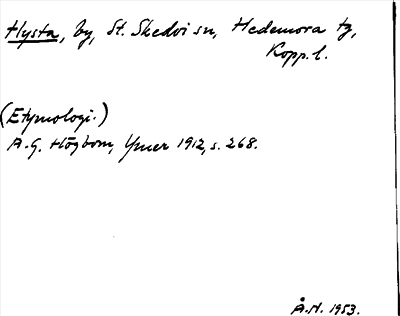 Hysta, by, St. Skedvi sn, Hedemora tg,
Kopp. l.
(Etymologi.)
A.G. Högbom, Ymer 1912, s. 268.
Å.N. 1953.